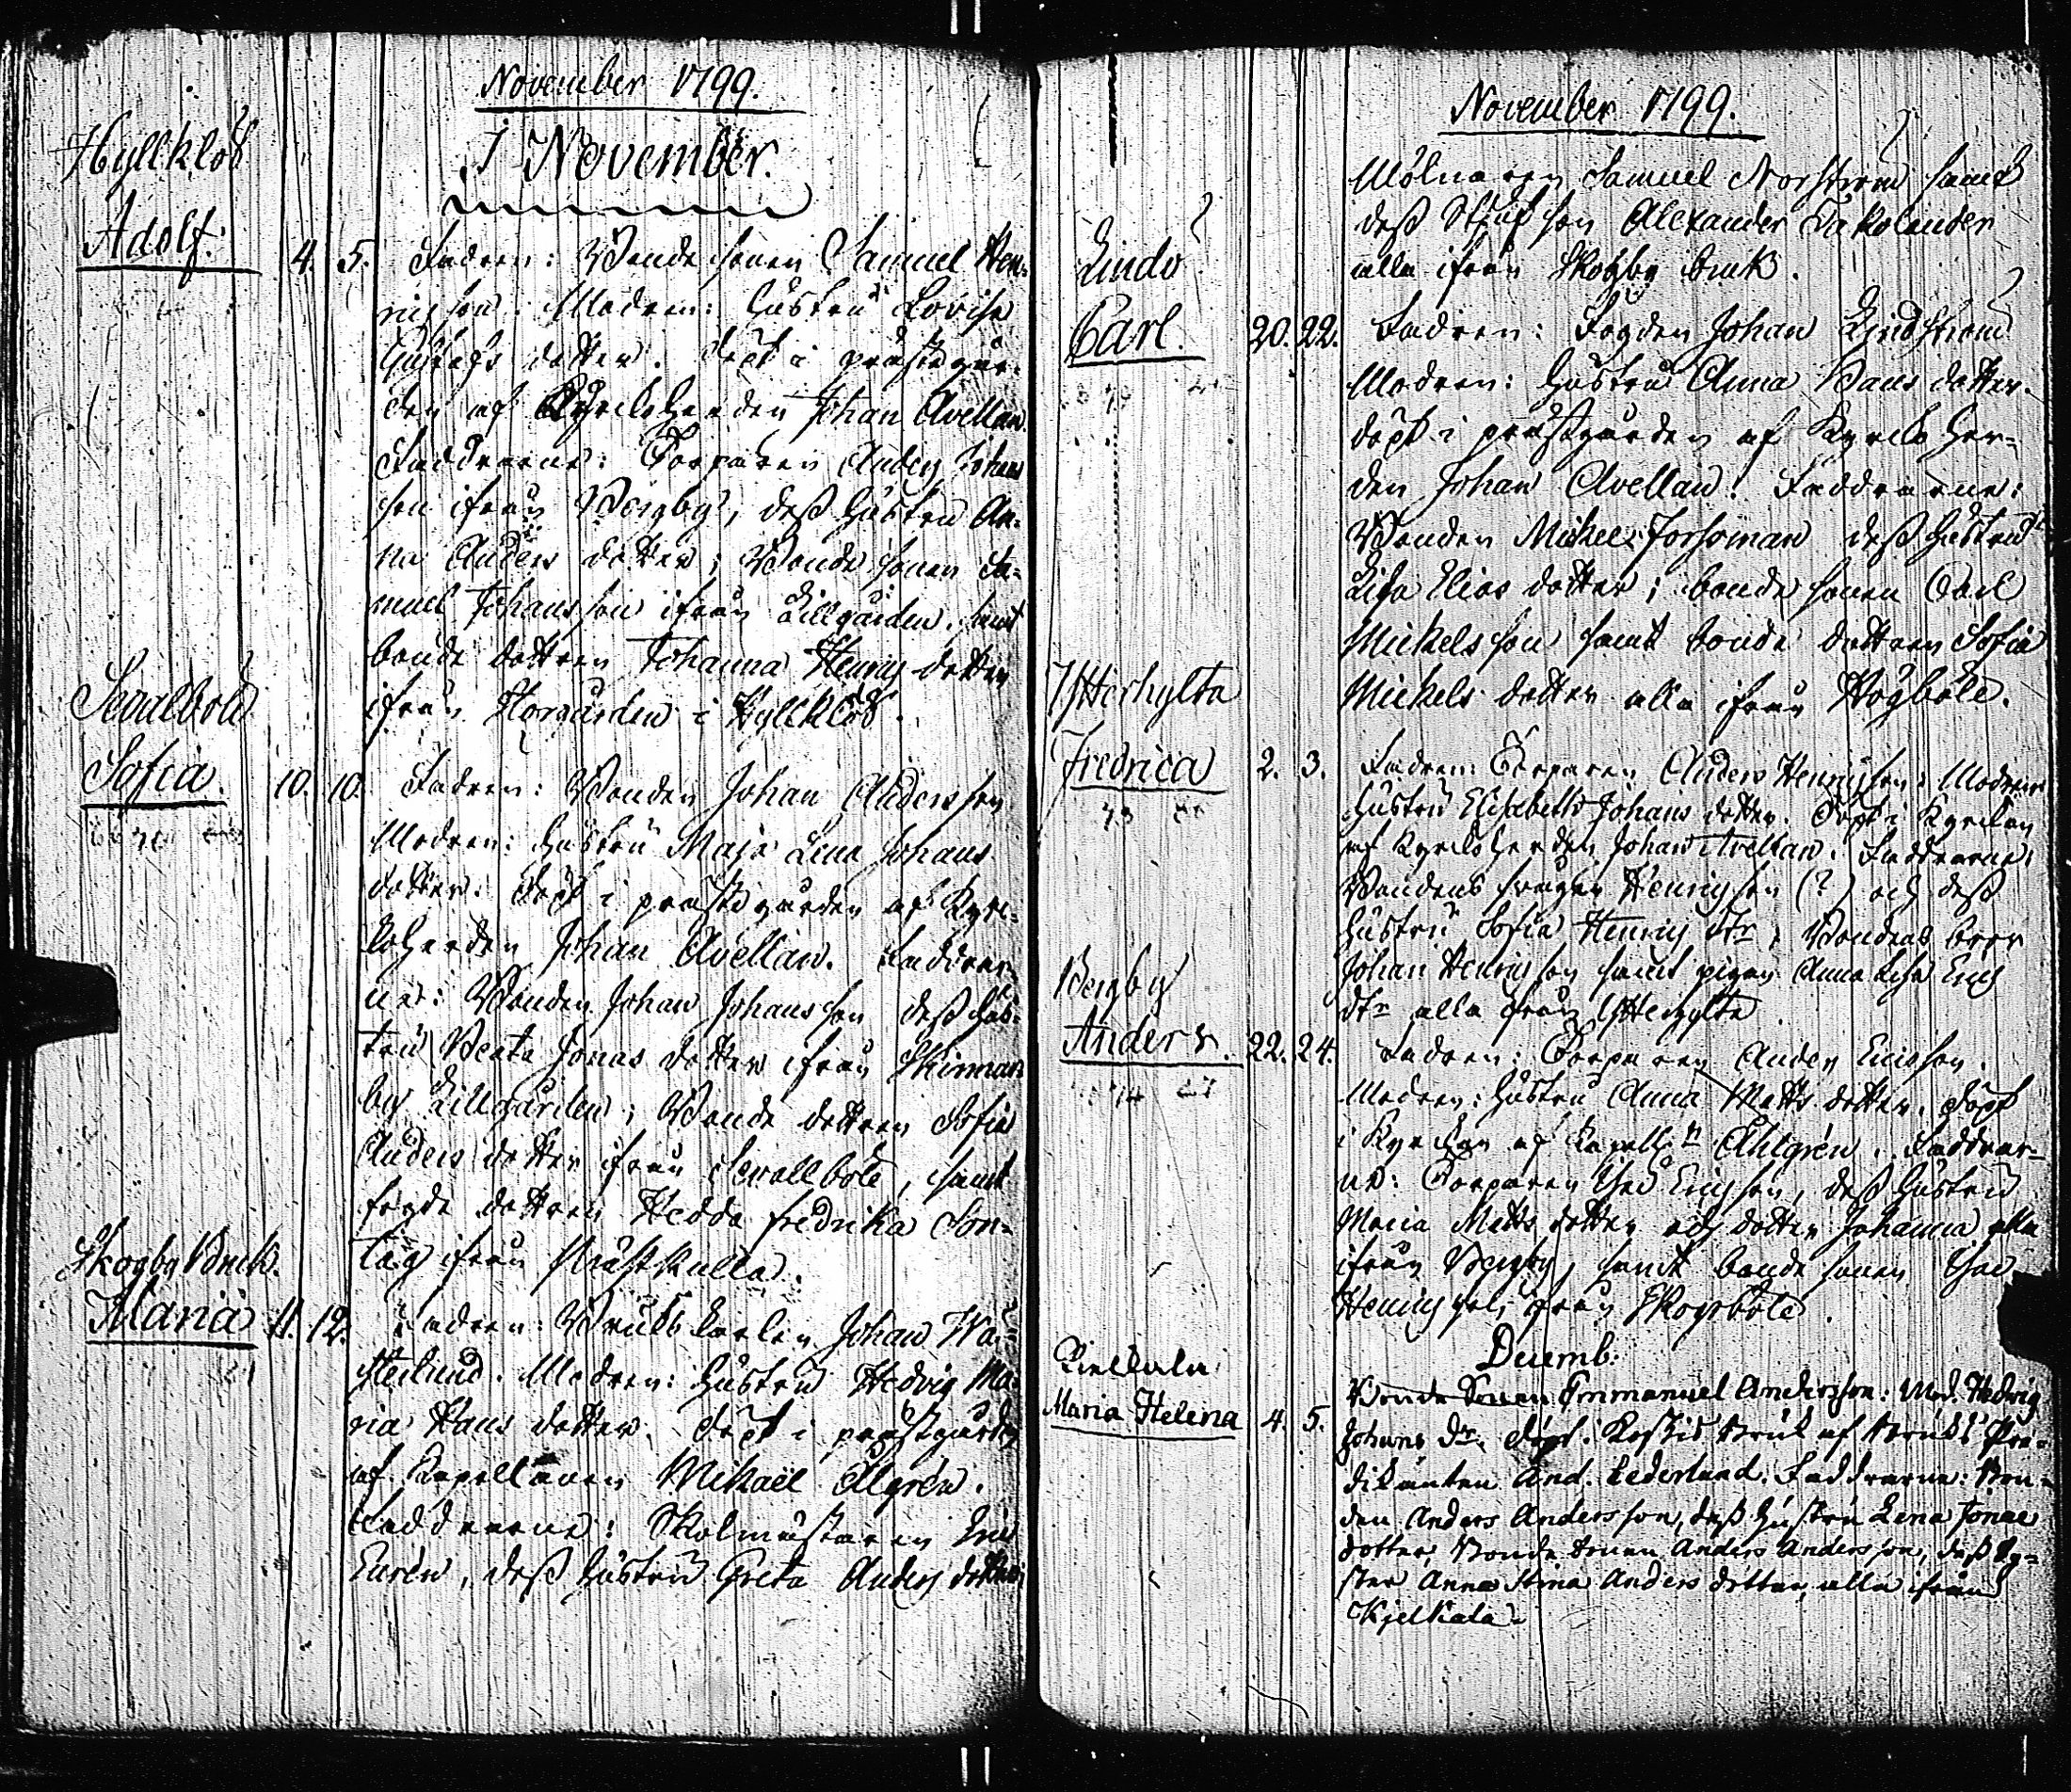 November 1799.
I November.
Hyllklöb
Adolf.
4. 5. Fadren: Bonde sonen Samuel Hen-
ricsson. Modren: hustru Lovisa
Gustafs dotter. döpt i prästgår-
den af Kyrckoherden Johan Avellan.
Faddrarne: Torparen Anders Johans
son ifrån Bergby, dess hustru An-
na Anders dotter; Bonde sonen Sa-
muel Johansson ifrån Lillgården, samt
bonde dottren Johanna Henrics dotter
ifrån Storgården i Hyllklöb.
Sevalbole
Sofia.
10. 10. Fadren: Bonden Johan Andersson
Modren: hustru Maja Lena Johans
dotter. döpt i prästgården af Kyrc-
koherden Johan Avellan. Faddrar-
ne: Bonden Johan Johansson dess hus-
tru Beata Jonas dotter ifrån Skinnar
by Lillgården; Bonde dottren Sofia
Anders dotter ifrån Sevallbole, samt
fogde dottren Hedda fredrika Son-
tag ifrån Prästkulla.
Skogby Bruk.
Maria
11. 12. Fadren: Bruks karlen Johan We-
sterlund. Modren: hustru Hedvig Ma-
ria Hans dotter. döpt i prästgården
af Kapellanen Mikaël Ölgrén.
Faddrarne: Skolmästaren Eric
Eurén, dess hustru Greta Anders dotter
November 1799.
Mölnaren Samuel Norström samt
dess Stjuf son Alexander Takolander
alla ifrån Skogby bruk.
Lindö
Carl.
20. 22. Fadren: Fogden Johan Lindström
Modren: hustru Anna Hans dotter.
döpt i prästgården af Kyrcko her-
den Johan Avellan. Faddrarne:
Bonden Mickel Forsoman dess hustru
Lisa Elias dotter; bonde sonen Carl
Mickelsson samt bonde dottren Sofia
Mickels dotter alla ifrån Högböle.
Ytterhylta
Fredrica
2. 3. Fadren: Torparen Anders Henricsson: Modren
hustru Elisabeth Johans dotter. Döpt i Kyrckan
af Kyrckoherden Johan Avellan. Faddrarne:
Bondens svåger Henricsson (?) och dess
hustru Sofia Henrics dtr, Bondens bror
Johan Henricsson samt pigan Anna Lisa Erics
dtr alla från Ytterhylta
Bergby
Anders.
22. 24. Fadren: Torparen Anders Ericsson.
Modren: hustru Anna Matts dotter. döpt
i Kyrckan af Kapelln Ahlgrén. Faddrar-
ne: Torparen Thad Ericsson, dess hustru
Maria Matts dotter och dotter Johanna alla
ifrån Bergby, samt bonde sonen Thad
Henricsson ifrån Skogsböle.
Decemb:
Kielkala
Maria Helena
4. 5. Bonde Sonen Emmanuel Andersson: Mod. Hedvig
Johans Dtr. döpt i Koskis Bruk af Bruks Pre-
dikanten And. Cederlund. Faddrarne: Bon-
den Anders Andersson, dess hustru Lena Jonae
dotter, Bonde sonen Anders Andersson, dess Sy-
ster Anna Stina Anders dotter, alla ifrån
Kjelkala.